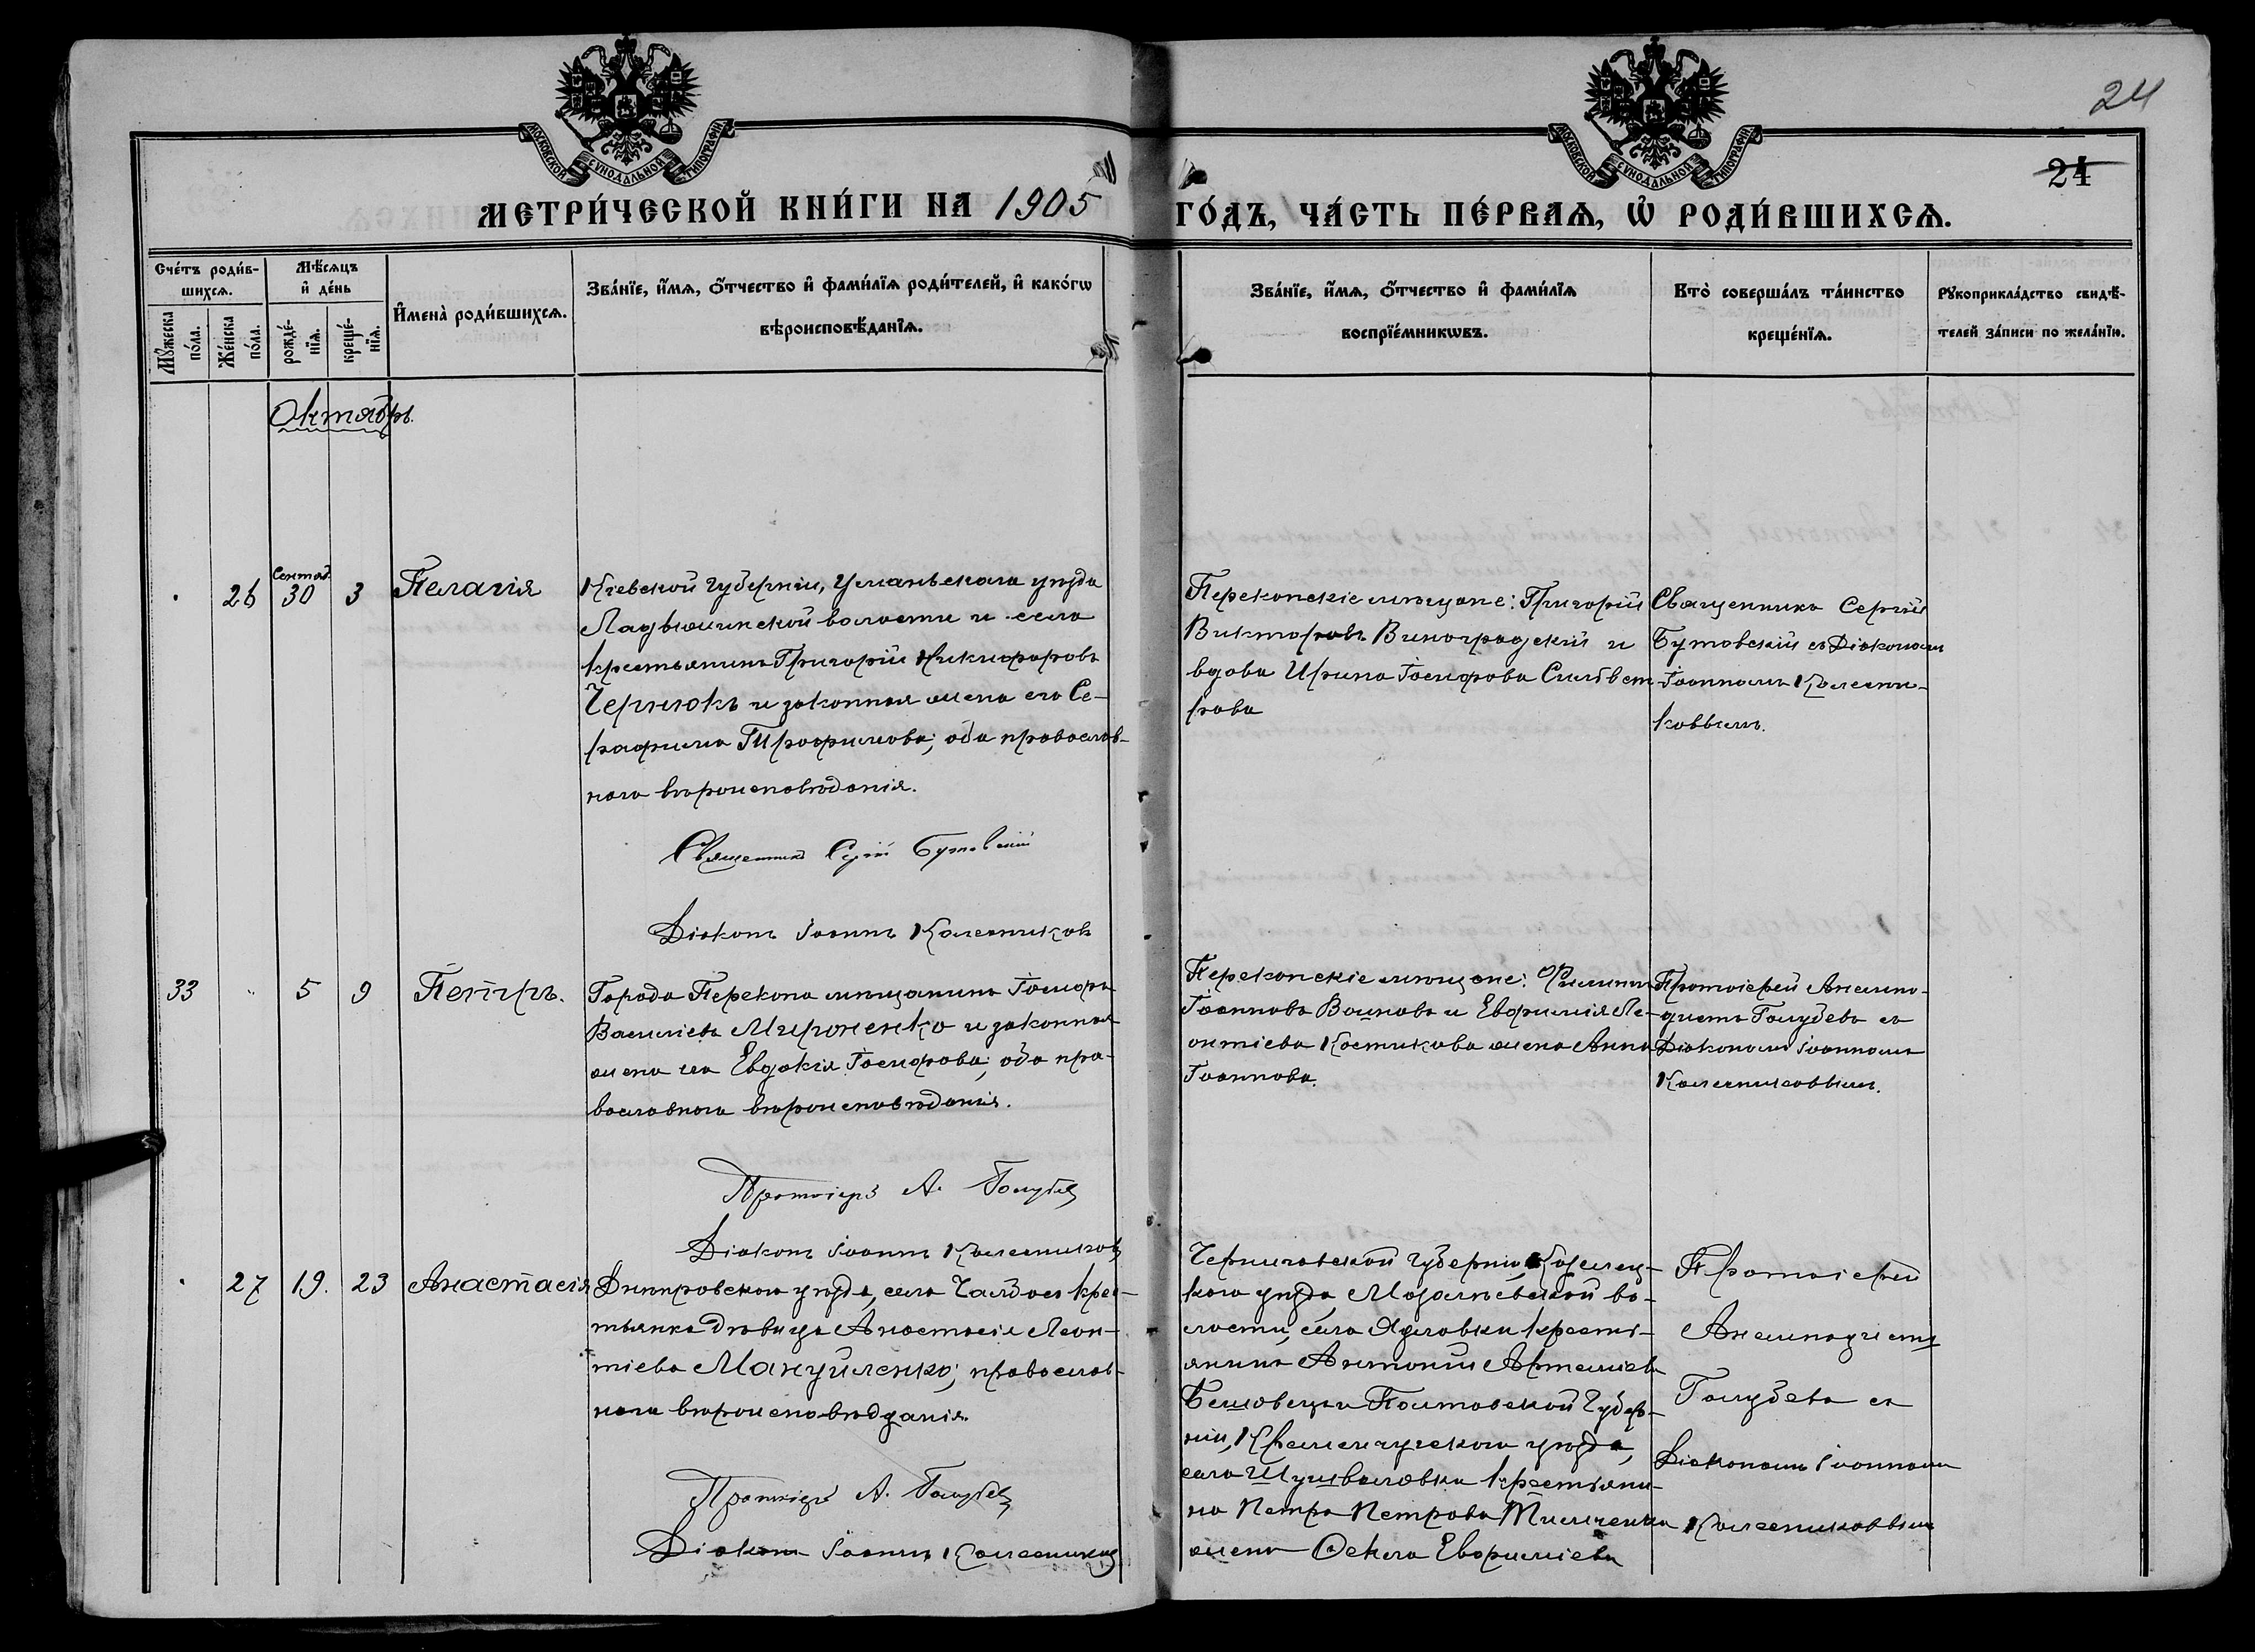 24
24
МОСКОВСКОЙ СѴНОДАЛЬНОЙ ТИПОГРАФІИ
МОСКОВСКОЙ СѴНОДАЛЬНОЙ ТИПОГРАФІИ
МЕТРИ́ЧЕСКОЙ КНИ́ГИ НА 1905 ГО́ДЪ, ЧА́СТЬ ПЕ́РВАѦ, Ѡ҆ РОДИ́ВШИХСѦ.
Сче́тъ роди́в-
шихсѧ.
Мꙋ́жеска
по́ла.
Же́нска
по́ла.
Мѣ́сѧцъ
и҆ де́нь
рожде́-
нїѧ.
креще́-
нїѧ.
И҆мена̀ роди́вшихсѧ.
Зва́нїе, и҆́мѧ, ѻ҆́тчество и҆ фами́лїѧ роди́телей, и҆ како́гѡ
вѣроисповѣ́данїѧ.
Зва́нїе, и҆́мѧ, ѻ҆́тчество и҆ фами́лїѧ
воспрїе́мникѡвъ.
Кто̀ соверша́лъ та́инство
креще́нїѧ.
Рꙋкоприкла́дство свидѣ́-
телей за́писи по жела́нїю.
Октябрь.
26
Сентяб.
30
3
Пелагія
Кіевской губерніи, Уманьскаго уѣзда
Ладыжинской волости и села
крестьянинъ Григорій Никифоровъ
Чернюкъ и законная жена его Се-
рафима Трофимова; оба православ-
наго вѣроисповѣданія.
Священникъ Сергій Бутовскій
Діаконъ Іоаннъ Колесниковъ
Перекопскіе мѣщане: Григорій
Викторовъ Виноградскій и
вдова Ирина Іосифова Сильвест-
рова
Священникъ Сергій
Бутовскій съ Діакономъ
Іоанномъ Колесни-
ковымъ.
33
5
9
Петръ.
Города Перекопа мѣщанинъ Іосифъ
Василіевъ Мироненко и законная
жена его Евдокія Іосифова; оба пра-
вославнаго вѣроисповѣданія.
Протоіерей А. Голубевъ
Діаконъ Іоаннъ Колесниковъ
Перекопскіе мѣщане: Филиппъ
Іоанновъ Воиновъ и Евфимія Ле-
онтіева Костикова жена Анна
Іоаннова.
Протоіерей Анемпо-
дистъ Голубевъ съ
Діакономъ Іоанномъ
Колесниковымъ.
27
19.
23
Анастасія
Днѣпровскаго уѣзда, села Чалбасъ крес-
тьянка дѣвица Анастасія Леон-
тіева Мануйленко; православ-
наго вѣроисповѣданія.
Протоіерей А. Голубевъ
Діаконъ Іоаннъ Колесниковъ
Черниговской губерніи, Козелец-
каго уѣзда, во-
лости, села Ядловки крестъ-
янинъ Антоній Артеміевъ
и Полтавской Губер-
ніи, Кременчугскаго уѣзда,
села Шушваловки крестьяни-
на Петра Петрова Тимченка
жена Ѳекла Евфиміева
Протоіерей
Анемподистъ
Голубевъ съ
Діакономъ Іоанномъ
Колесниковымъ